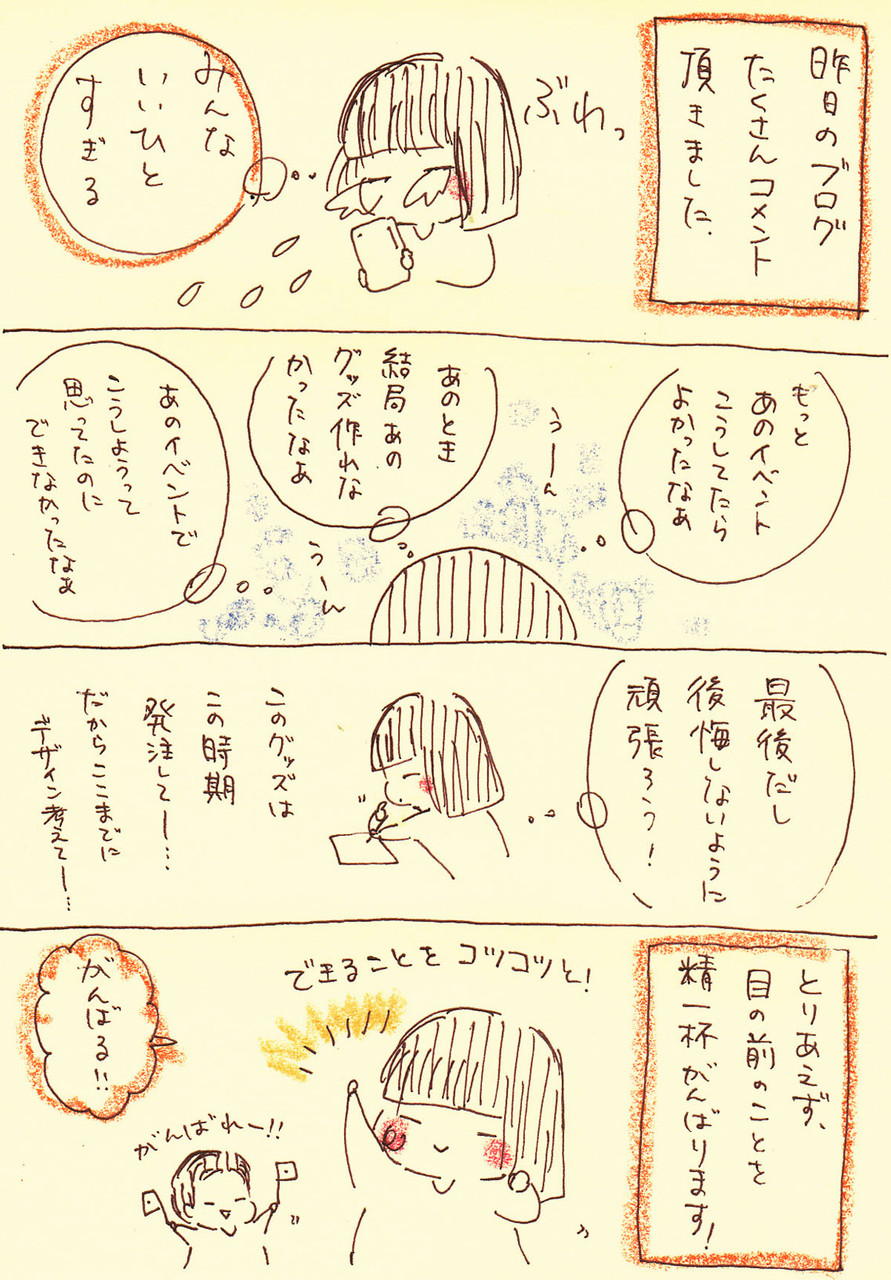 昨日のブログ
たくさんコメント
頂きました.
ぶわっ
みんな
いいひと
すぎる
もっと
あのイベント
こうしてたら
よかったなぁ
うーん
あのとき
結局あの
グッズ作れな
かったなぁ
うーん
あのイベントで
こうしようって
思ってたのに
できなかったなぁ
最後だし
後悔しないように
頑張ろう!
このグッズは
この時期
発注してー…
だからここまでに
デザイン考えてー…
とりあえず、
目の前のことを
精一杯がんばります!
できることをコツコツと!
がんばる!!
がんばれー!!